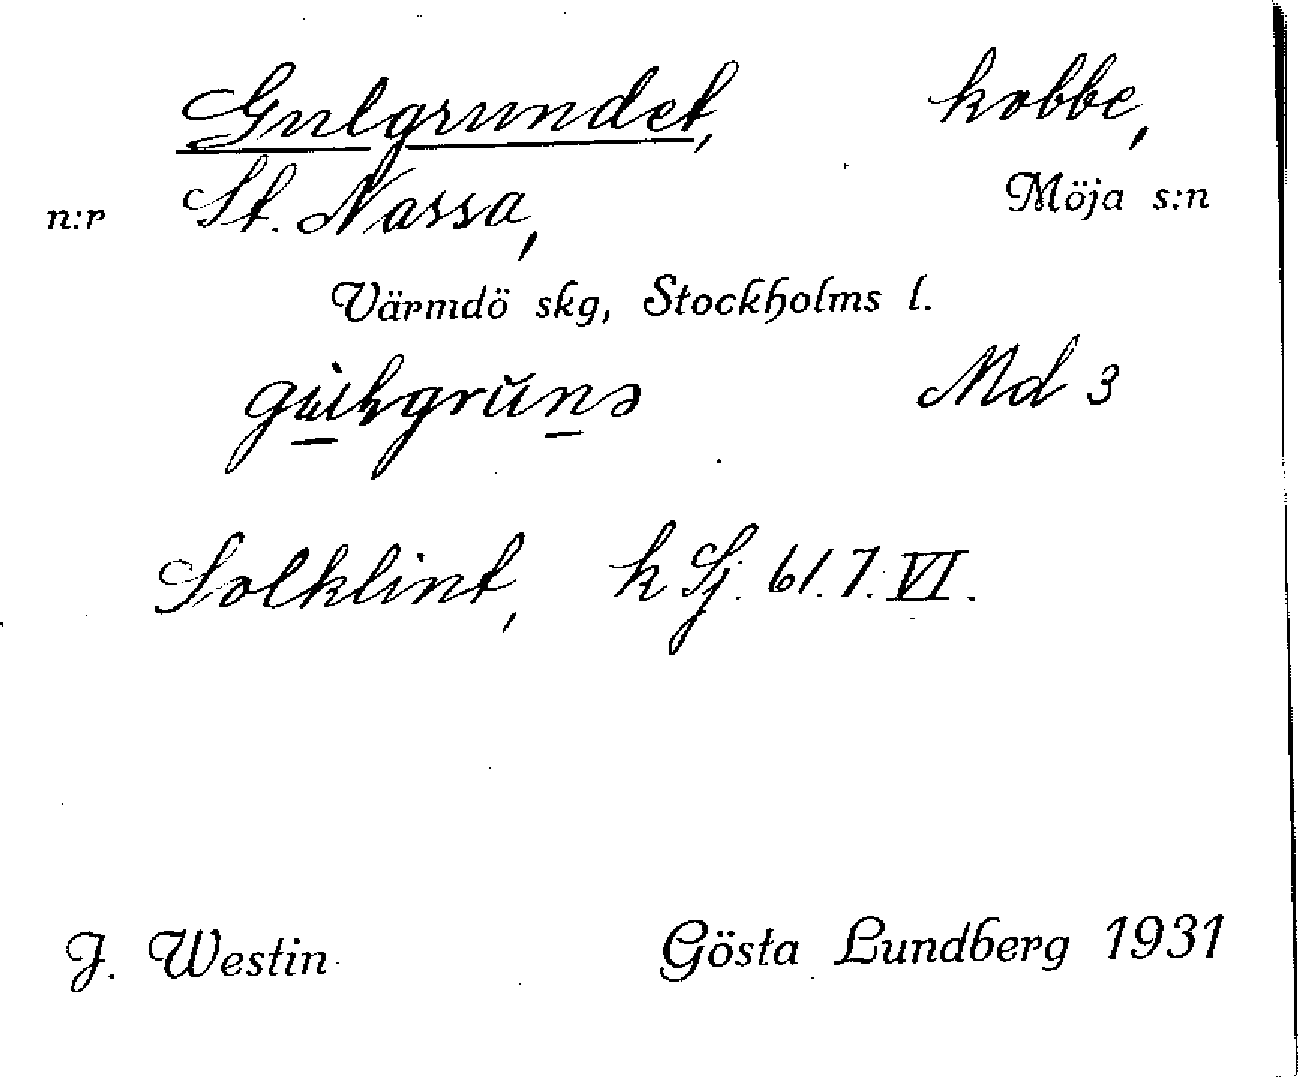 Gulgrundet, kobbe,
n:r St. Nassa, Möja s:n
Värmdö skg, Stockholms l.
Md 3
Solklint, k Sj. 61. 7. VI.
J. Westin Gösta Lundberg 1931